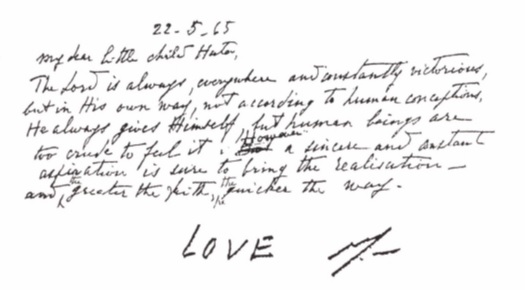 22-5-65
My dear little child Huta,
The Lord is always, everywhere and constantly victorious,
but in His own way, not according to human conceptions.
He always gives Himself, but human beings are
too crude to feel it. However a sincere and constant
aspiration is sure to bring the realisation —
and, the greater the faith, the quicker the way.
LOVE